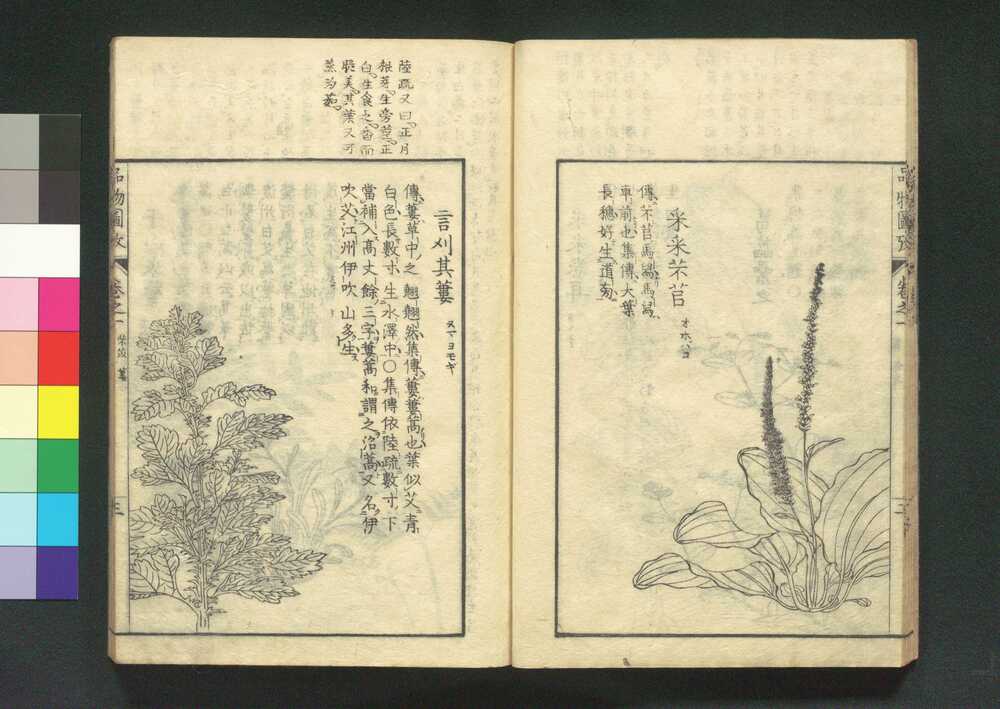 采采芣苢
オホバコ
傳芣苢馬舄馬舄
車前也集傳大葉
長穗好生道旁
品物圖攷
卷之一
陸疏又曰正月
根芽生旁莖正
白生食之香而
脆美其葉又可
蒸爲茹
言刈其蔞
ヌマヨモギ
傳蔞草中之翹翹然集傳蔞蔞蒿也葉似艾青
白色長數寸生水澤中〇集傳依陸疏數寸下
當補入高丈餘三字蔞蒿和謂之沼蒿又名伊
吹艾江州伊吹山多生
品物圖攷
卷之一
三